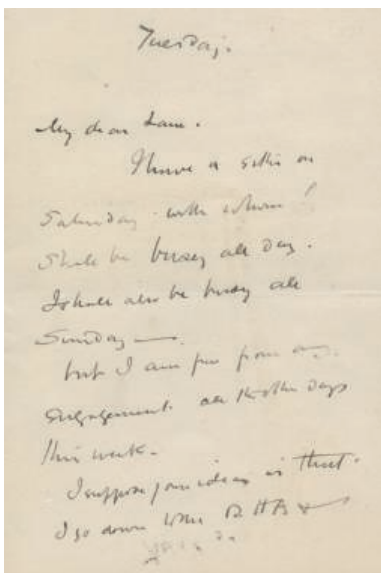 Tuesday.
My dear Lane.
I have a sitter on
Saturday with whom I
Shall be busy all day.
I shall also be busy all
Sunday —.
but I am free from any
engagement all the other days
this week.
I suppose your idea is that
I go down with